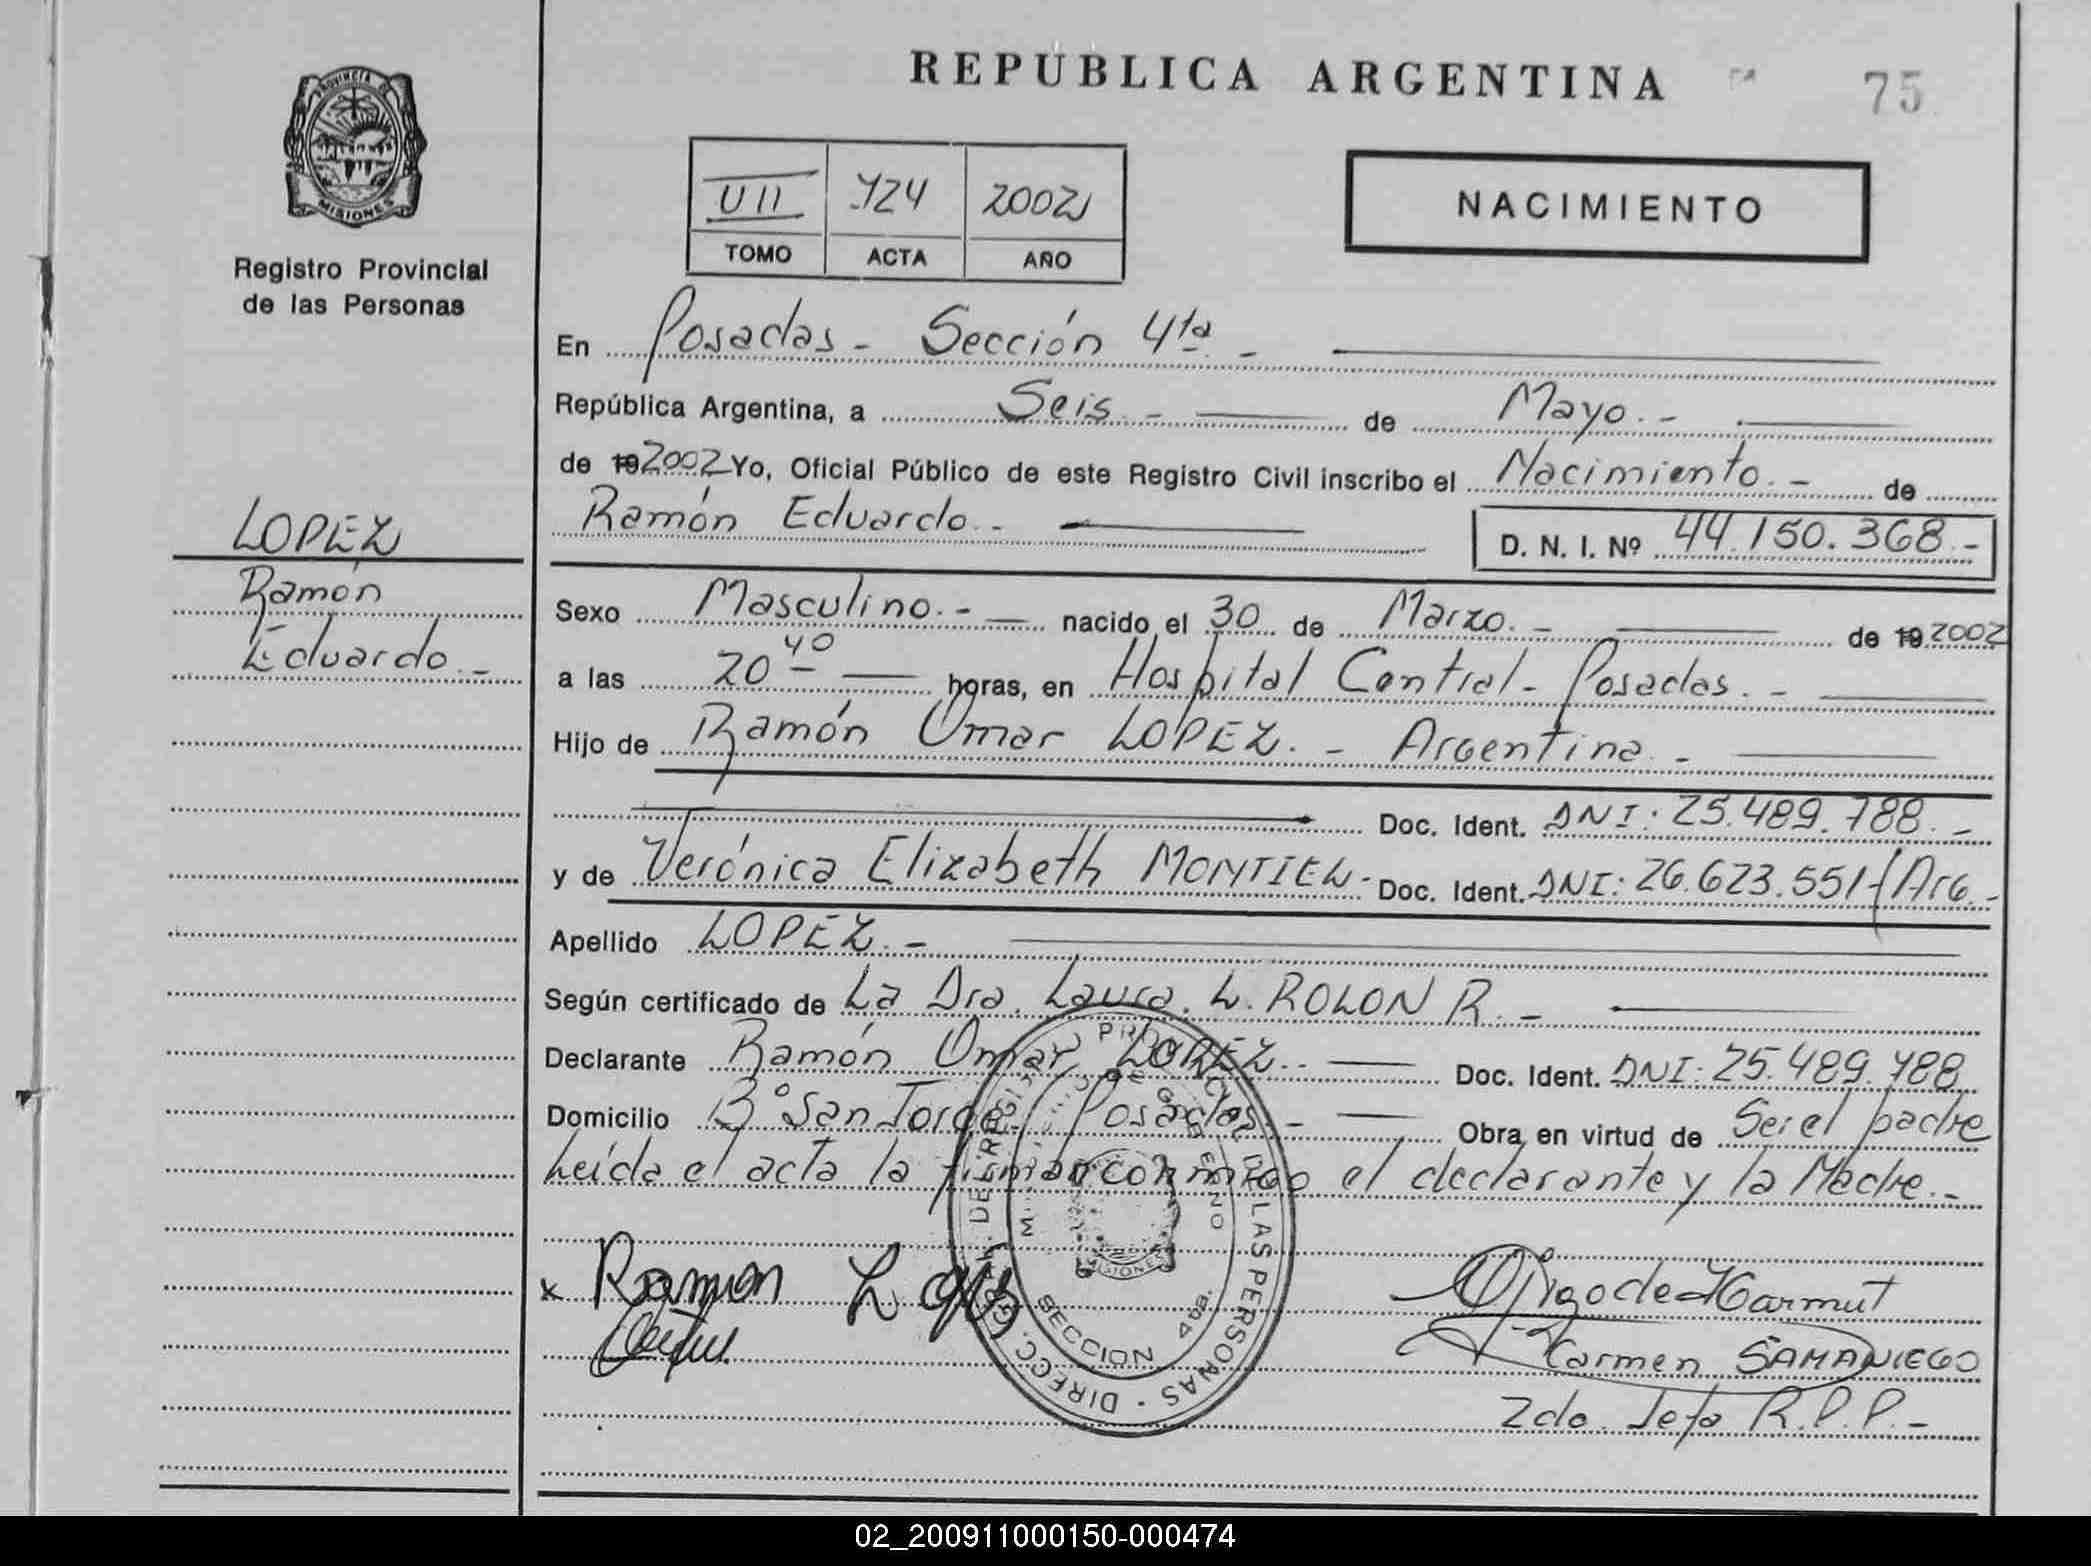 REPUBLICA ARGENTINA
75
PROVINCIA DE
MISIONES
Registro Provincial
de las Personas
VII 724 2002
TOMO ACTA AÑO
NACIMIENTO
En Posadas - Sección 4ta. -
República Argentina, a Seis. - de Mayo. -
de 19 2002 Yo, Oficial Público de este Registro Civil inscribo el Nacimiento. - de
Ramón Eduardo. - D. N. I. Nº 44.150.368.-
LOPEZ
Ramón
Eduardo. -
Sexo Masculino. - nacido el 30 de Marzo. - de 19 2002
a las 20 40 horas, en Hospital Central - Posadas. -
Hijo de Ramón Omar LOPEZ. - Argentina. -
Doc. Ident. DNI: 25.489.788. -
y de Verónica Elizabeth MONTIEL. Doc. Ident. DNI: 26.623.551 / Arg. -
Apellido LOPEZ. -
Según certificado de La Dra. Laura. L. ROLON R. -
Declarante Ramón Omar LOPEZ. - Doc. Ident. DNI: 25.489.788
Domicilio Bº San Jorge - Posadas. - Obra en virtud de Ser el padre
Leída el acta la firman conmigo el declarante y la Madre. -
x Ramon
Carmen SAMANIEGO
2do. Jefa R.P.P. -
DIRECC. GRAL. DEL REGISTRO PROVINCIAL DE LAS PERSONAS
SECCION 4ta.
MISIONES
02_200911000150-000474